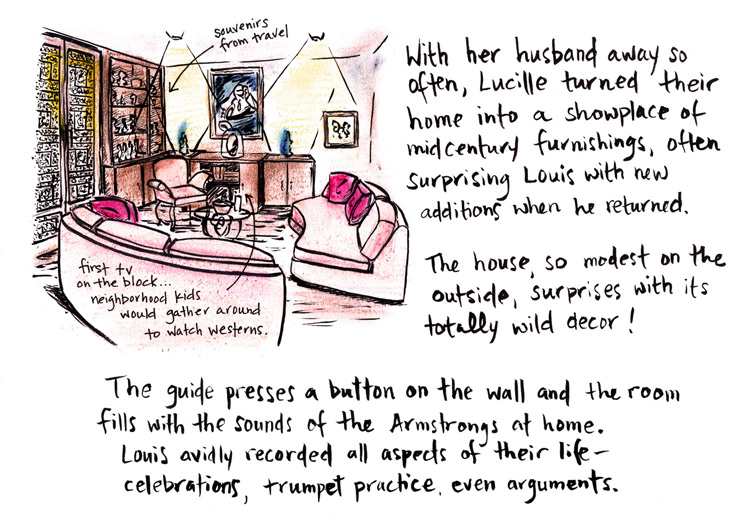 souvenirs
from travel
first tv
on the block...
neighborhood kids
would gather around
to watch westerns.
With her husband away so
often, Lucille turned their
home into a showplace of
midcentury furnishings, often
surprising Louis with new
additions when he returned.
The house, so modest on the
outside, surprises with its
totally wild decor!
The guide presses a button on the wall and the room
fills with the sounds of the Armstrongs at home.
Louis avidly recorded all aspects of their life-
celebrations, trumpet practice, even arguments.